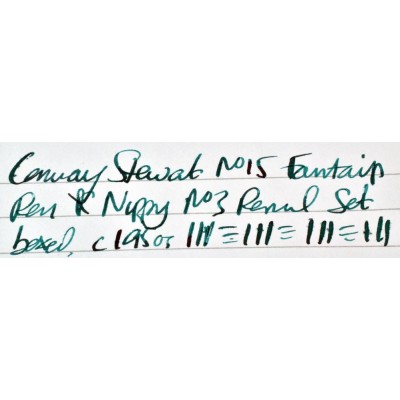 Conway Stewat No15 Fountain
Pen & Nippy No3 Pencil Set
boxed, c1950s